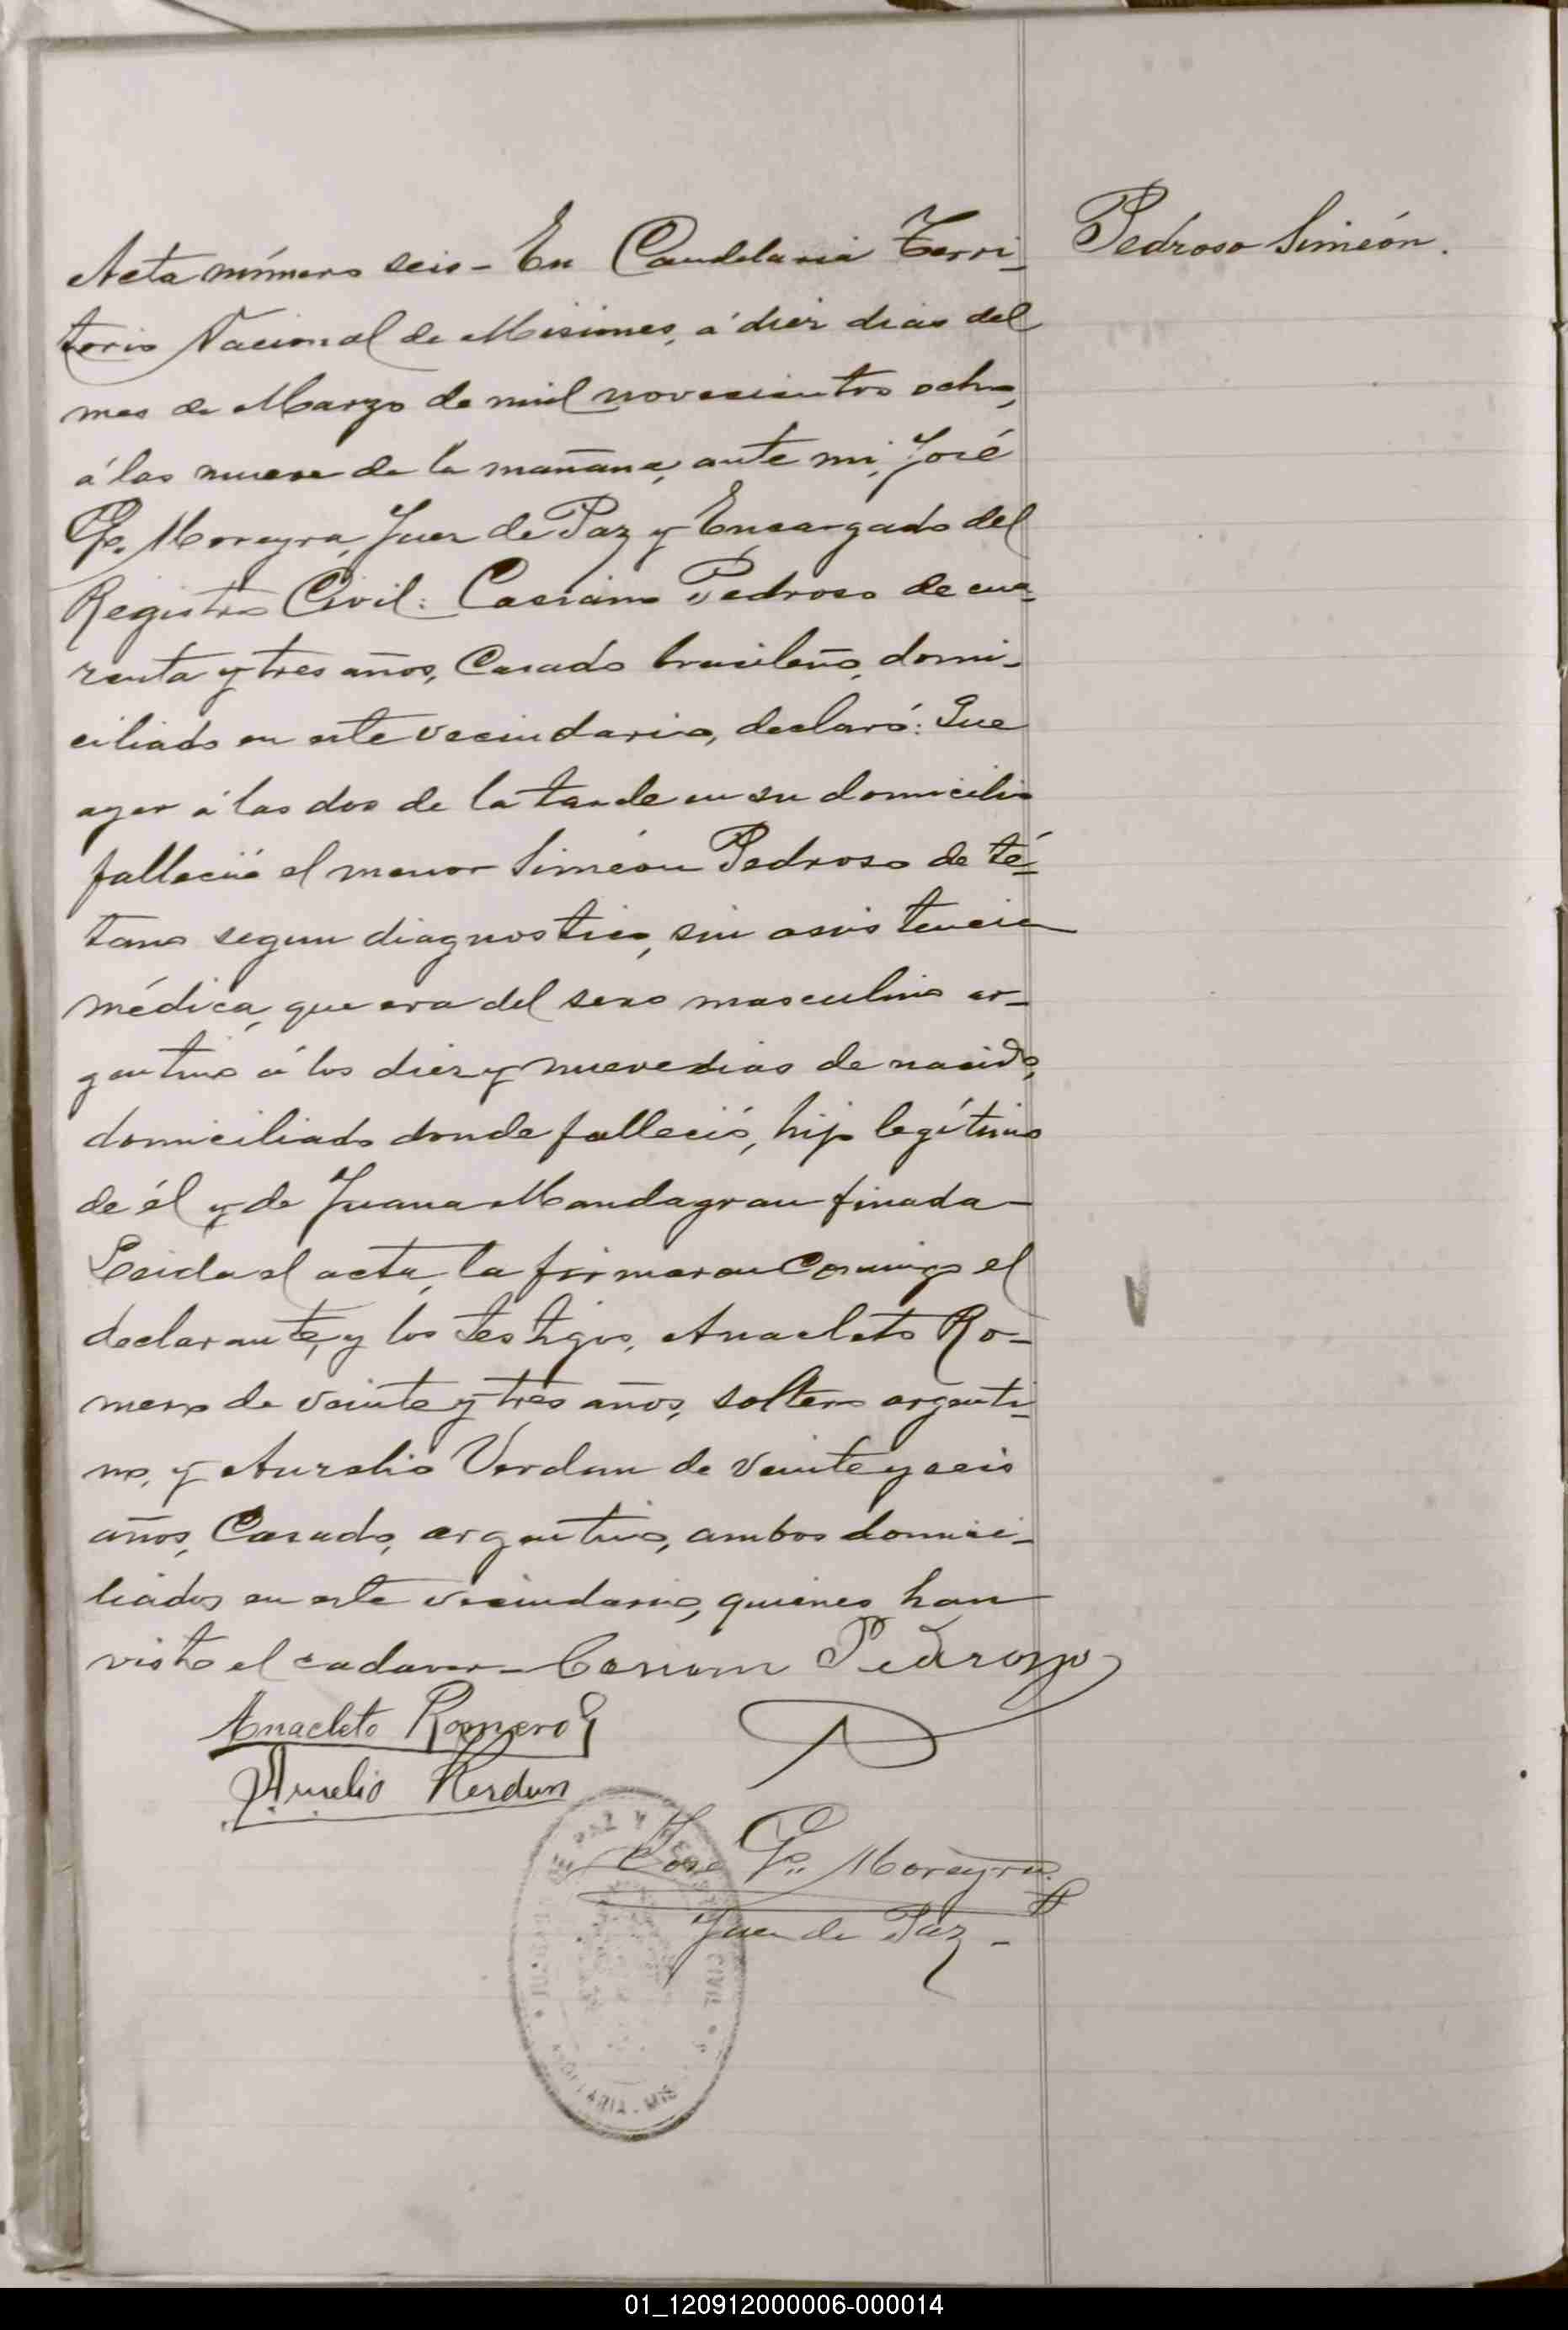 Pedroso Simeón.
Acta número seis - En Candelaria Terri-
torio Nacional de Misiones, á diez dias del
mes de Marzo de mil novecientos ocho,
á las nueve de la mañana, ante mi, José
Moreyra, Juez de Paz y Encargado del
Registro Civil: Casiano Pedroso de cua-
renta y tres años, Casado brasileño, domi-
ciliado en este vecindario, declaró: Que
ayer á las dos de la tarde en su domicilio
falleció el menor Simeón Pedroso de té-
tano segun diagnostico, sin asistencia
médica, que era del sexo masculino ar-
gentino á los diez y nueve dias de nacido,
domiciliado donde falleció, hijo legítimo
de él y de Juana Mandagran finada -
Leida el acta, la firmaron conmigo el
declarante, y los testigos, Anacleto Ro-
mero de veinte y tres años, soltero argenti-
no, y Aurelio Verdun de veinte y seis
años, Casado, argentino, ambos domici-
liados en este vecindario, quienes han
visto el cadaver - Casiano Pedrozo
Anacleto Romero
Aurelio Verdun
José Moreyra
Juez de Paz -
DE PAZ Y
CIVIL
01_120912000006-000014